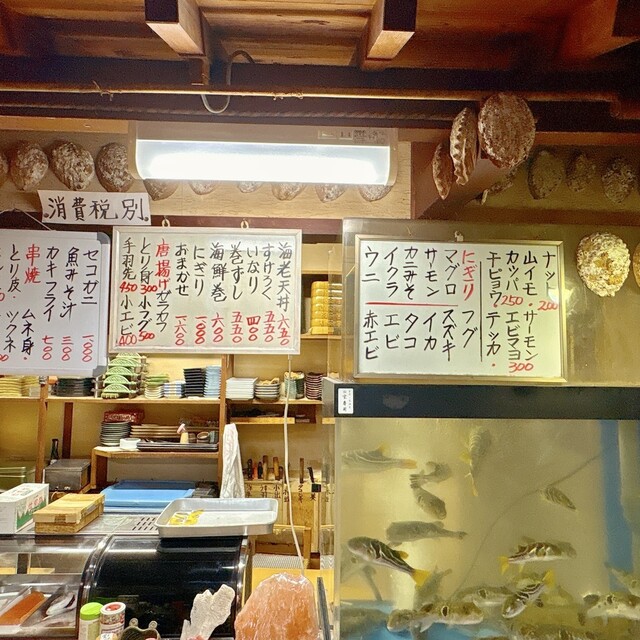 消費税別
セコガニ 1000
魚みそ汁 300
カキフライ 700
串焼
ムネ身・
とり皮・ツクネ
海老天丼 650
すけろく 550
いなり 400
巻ずし 550
海鮮巻 1600
にぎり 1000
おまかせ 1600
唐揚げ
とり身 300 小フグ 500
手羽先 450 小エビ 400
ナットー 200
山イモ・サーモン
カッパ 250 エビマヨ 300
テッカ・
にぎり フグ
マグロ スズキ
サーモン イカ
カニみそ タコ
イクラ エビ
ウニ 赤エビ